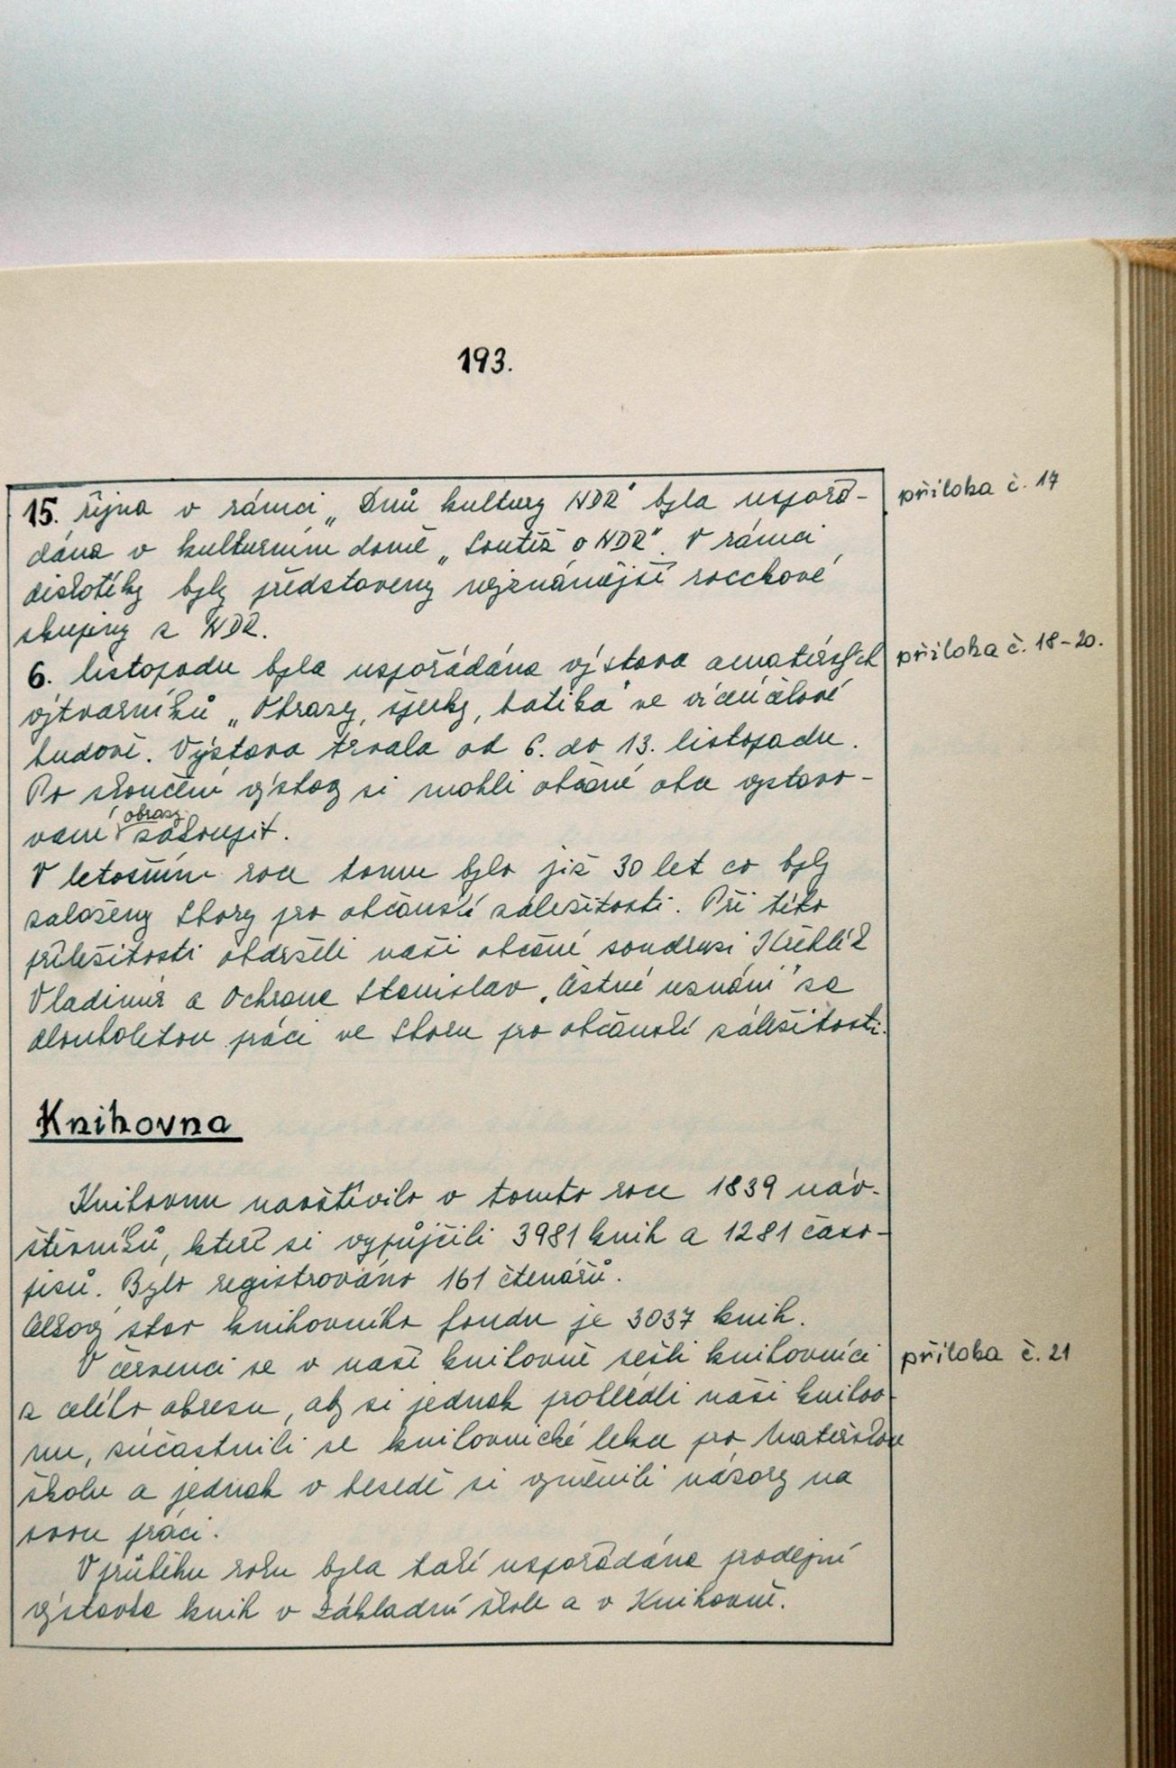 193.
15. října v rámci „Dnů kultury NDR" byla uspořá-
příloha č. 17
dána v kulturním domě „Soutěž o NDR". V rámci
diskotéky byly představeny nejznámější rocckové
skupiny z NDR.
6. listopadu byla uspořádána výstava amatérských
příloha č. 18-20.
výtvarníků „Obrazy, šperky, batika" ve víceúčelové
budově. Výstava trvala od 6. do 13. listopadu.
Po skončení výstavy si mohli občané oba vystavo-
vané obrazy zakoupit.
V letošním roce tomu bylo již 30 let co byly
založeny Sbory pro občanské záležitosti. Při této
příležitosti obdrželi naši občané soudruzi
Vladimír a Ochrana Stanislav „Čestné uznání" za
dlouholetou práci ve Sboru pro občanské záležitosti.
Knihovna
Knihovnu navštívilo v tomto roce 1839 náv-
štěvníků, kteří si vypůjčili 3981 knih a 1281 časo-
pisů. Bylo registrováno 161 čtenářů.
Celkový stav knihovního fondu je 3037 knih.
V červenci se v naší knihovně sešli knihovníci
příloha č. 21
z celého okresu, aby si jednak prohlédli naši knihov-
nu, zúčastnili se knihovnické lekce pro Mateřskou
školu a jednak v besedě si vyměnili názory na
svou práci.
V průběhu roku byla také uspořádána prodejní
výstavka knih v Základní škole a v Knihovně.